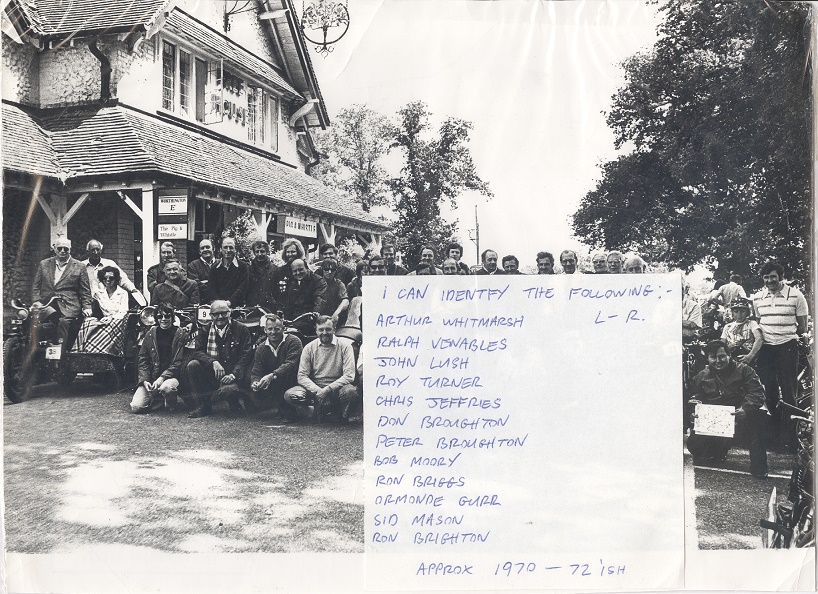 WORTHINGTON
E
The Pig &
Whistle
PIG & WHISTLE
9
3
I CAN IDENTFY THE FOLLOWING:-
ARTHUR WHITMARSH L-R.
RALPH VENABLES
JOHN LUSH
ROY TURNER
CHRIS JEFFRIES
DON BROUGHTON
PETER BROUGHTON
BOB MOORY
RON BRIGGS
ORMONDE GURR
SID MASON
RON BRIGHTON
APPROX 1970 - 72'ISH